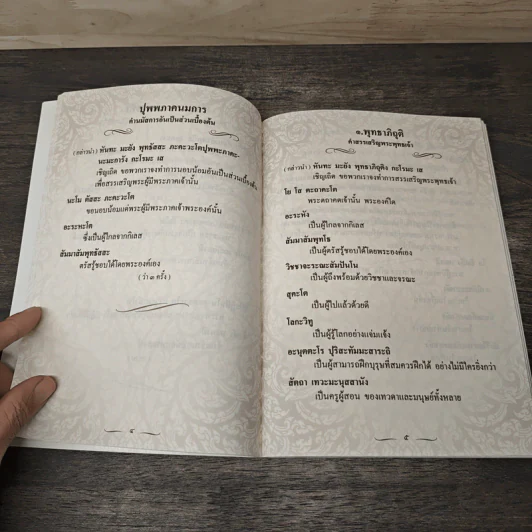 ปุพพภาคนมการ
คำนมัสการอันเป็นส่วนเบื้องต้น
(กล่าวนำ) หันทะ มะยัง พุทธัสสะ ภะคะวะโตปุพพะภาคะ-
นะมะการัง กะโรมะ เส
เชิญเถิด ขอพวกเราจงทำการนอบน้อมอันเป็นส่วนเบื้องต้น
เพื่อสรรเสริญพระผู้มีพระภาคเจ้านั้น
นะโม ตัสสะ ภะคะวะโต
ขอนอบน้อมแด่พระผู้มีพระภาคเจ้าพระองค์นั้น
อะระหะโต
ซึ่งเป็นผู้ไกลจากกิเลส
สัมมาสัมพุทธัสสะ
ตรัสรู้ชอบได้โดยพระองค์เอง
(ว่า ๓ ครั้ง)
๔
๑.พุทธาภิถุติ
คำสรรเสริญพระพุทธเจ้า
(กล่าวนำ) หันทะ มะยัง พุทธาภิถุติง กะโรมะ เส
เชิญเถิด ขอพวกเราจงทำการสรรเสริญพระพุทธเจ้า
โย โส ตะถาคะโต
พระตถาคตเจ้านั้น พระองค์ใด
อะระหัง
เป็นผู้ไกลจากกิเลส
สัมมาสัมพุทโธ
เป็นผู้ตรัสรู้ชอบได้โดยพระองค์เอง
วิชชาจะระณะสัมปันโน
เป็นผู้ถึงพร้อมด้วยวิชชาและจรณะ
สุคะโต
เป็นผู้ไปแล้วด้วยดี
โลกะวิทู
เป็นผู้รู้โลกอย่างแจ่มแจ้ง
อะนุตตะโร ปุริสะทัมมะสาระถิ
เป็นผู้สามารถฝึกบุรุษที่สมควรฝึกได้ อย่างไม่มีใครยิ่งกว่า
สัตถา เทวะมะนุสสานัง
เป็นครูผู้สอน ของเทวดาและมนุษย์ทั้งหลาย
๕